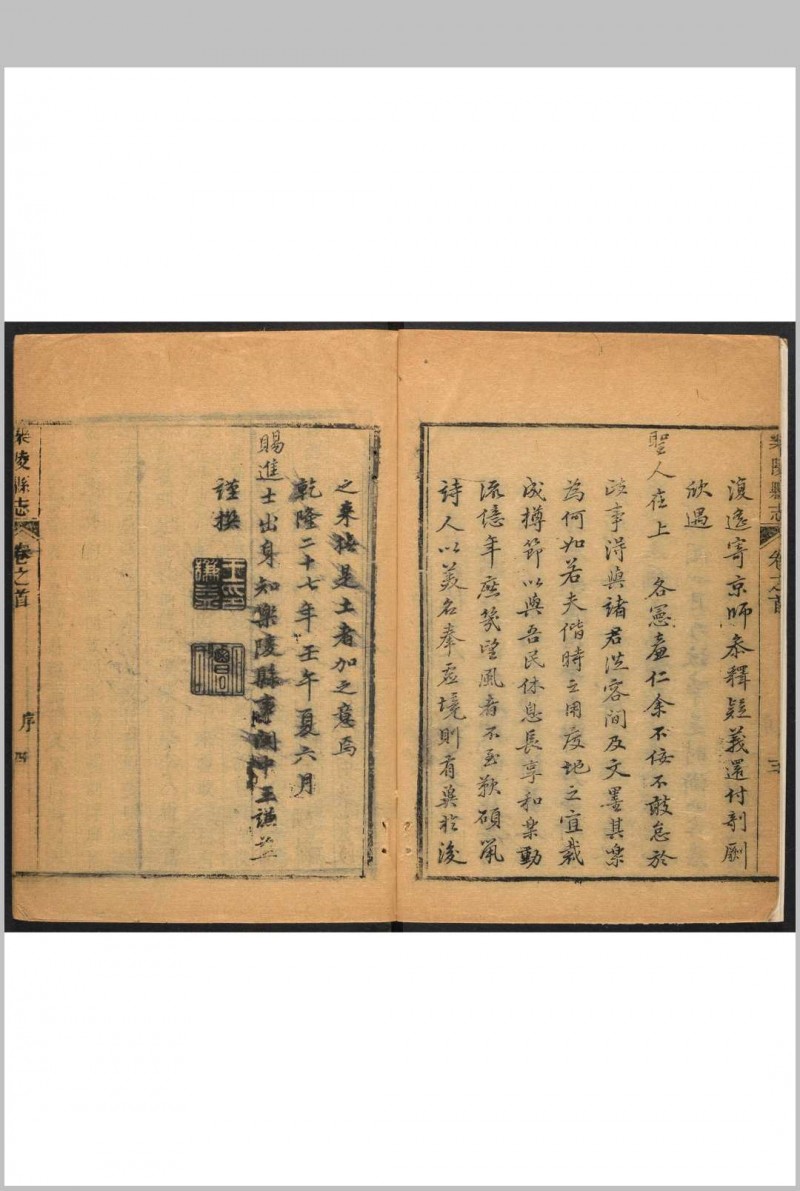 樂陵縣志 卷之首
復遠寄京師叅釋疑義還付剞劂
欣遇
聖人在上 各憲羣仁余不佞不敢怠於
政事得與諸君從容間及文墨其樂
為何如若夫偕時之用度地之宜裁
成樽節以與吾民休息長享和樂動
流億年庶幾望風者不至歎碩鼠
詩人以美名奉虛境則有奠於後
之來牧是土者加之意焉
乾隆二十七年壬午夏六月
賜進士出身知樂陵縣事閩中王謙益
謹撰
王謙益印
樂陵縣志 卷之首 序 四